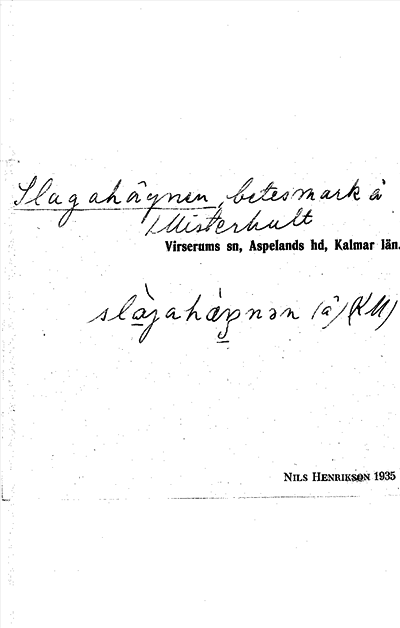 Slagahägnen, betesmark å
Misterhult
Virserums sn, Aspelands hd, Kalmar län.
(å) (KM)
NILS HENRIKSON 1935